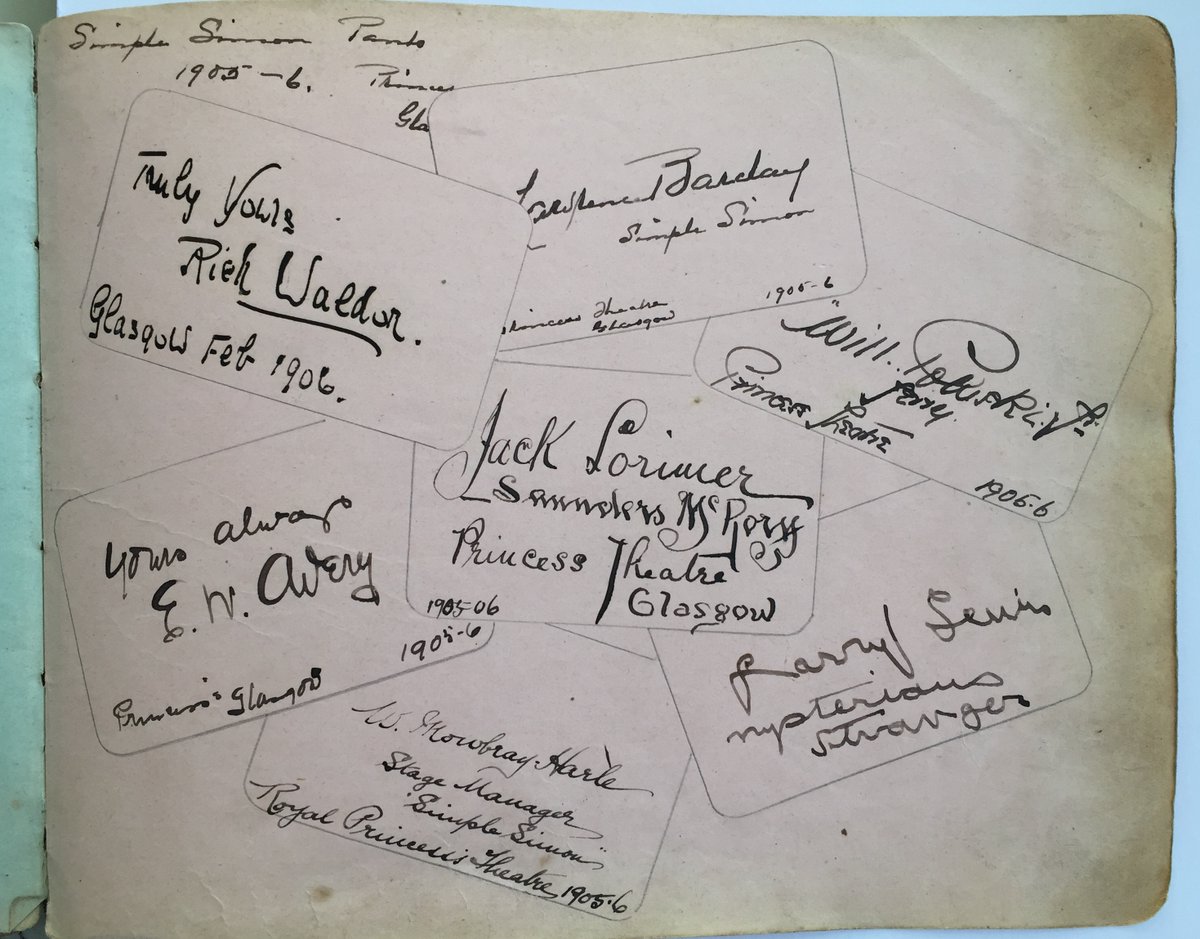 Simple Simon Panto
1905-6. Princes
Gla
Truly Yours
Rich Waldon.
Glasgow Feb 1906.
Lawrence Barclay
Simple Simon
Princess Theatre
Glasgow
1905-6
"Will. Poluski. Jr
Jerry.
Princess Theatre
1905-6
Jack Lorimer
Saunders McRory
Princess Theatre
Glasgow
1905-06
Yours always
E. W. Avery
1905-6
Princess's Glasgow
Harry Lewis
mysterious
stranger
W. Mowbray-Harle
Stage Manager
"Simple Simon"
Royal Princess's Theatre, 1905-6